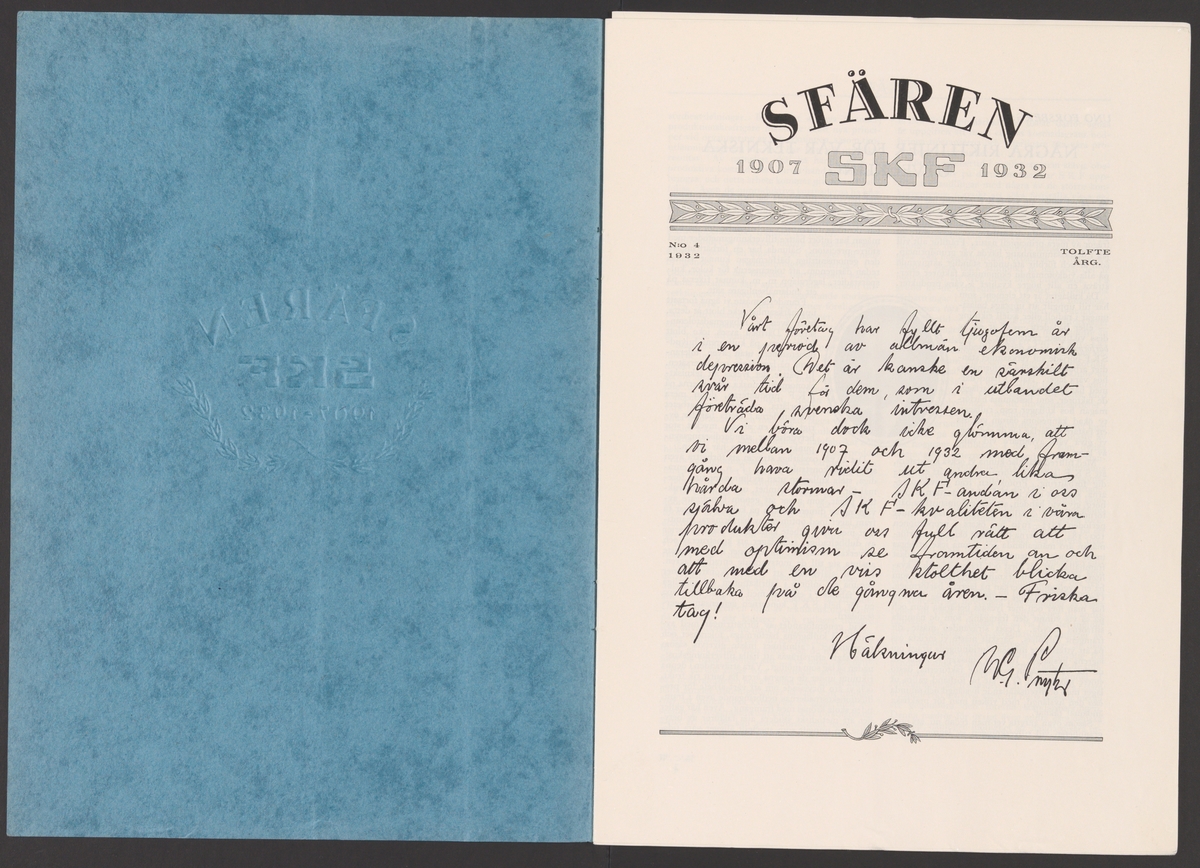 SFÄREN
SKF
1907-1932
SFÄREN
1907 SKF 1932
N:o 4
1932
TOLFTE
ÅRG.
Vårt företag har fyllt tjugofem år
i en period av allmän ekonomisk
depression. Det är kanske en särskilt
svår tid för dem, som i utlandet
företräda svenska intressen.
Vi böra dock icke glömma, att
vi mellan 1907 och 1932 med fram-
gång hava ridit ut andra, lika
hårda stormar — SKF-andan i oss
själva och SKF-kvaliteten i våra
produkter giva oss full rätt att
med optimism se framtiden an och
att med en viss stolthet blicka
tillbaka på de gångna åren. — Friska
tag!
Hälsningar